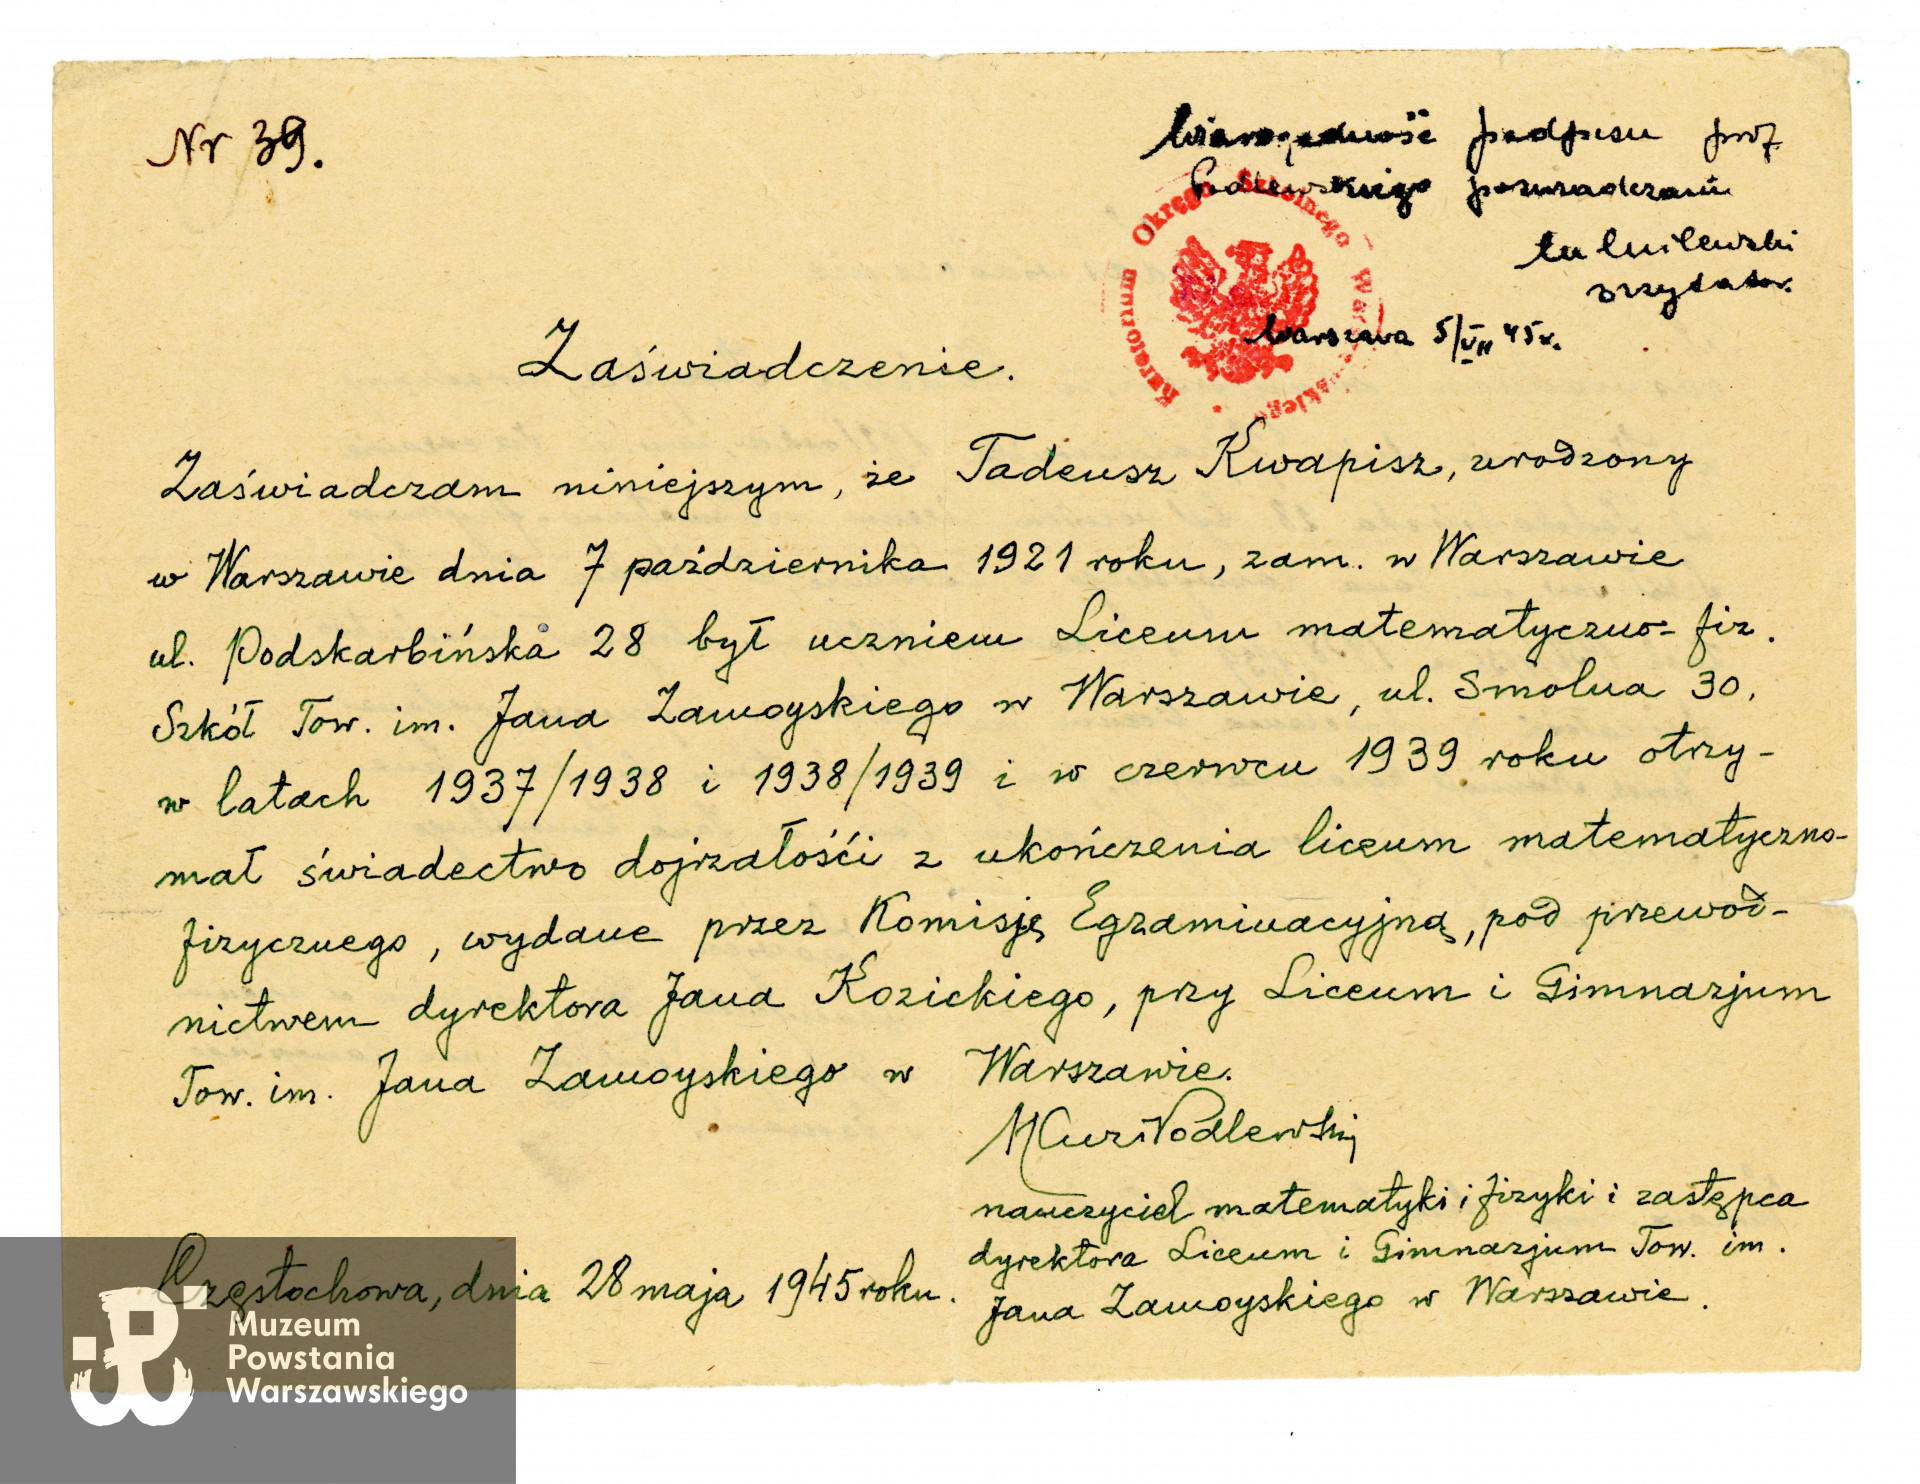 Nr 39.
Wiarogodność podpisu prof.
Podlewskiego poświadczam
Warszawa 5/VII 45 r.
Kuratorium Okręgu Szkolnego Warszawskiego
Zaświadczenie.
Zaświadczam niniejszym, że Tadeusz Kwapisz, urodzony
w Warszawie dnia 7 października 1921 roku, zam. w Warszawie
ul. Podskarbińska 28 był uczniem Liceum matematyczno-fiz.
Szkół Tow. im. Jana Zamoyskiego w Warszawie, ul. Smolna 30,
w latach 1937/1938 i 1938/1939 i w czerwcu 1939 roku otrzy-
mał świadectwo dojrzałośći z ukończenia liceum matematyczno-
fizycznego, wydane przez Komisję Egzaminacyjną, pod przewod-
nictwem dyrektora Jana Kozickiego, przy Liceum i Gimnazjum
Tow. im. Jana Zamoyskiego w Warszawie.
Podlewski
nauczyciel matematyki i fizyki i zastępca
dyrektora Liceum i Gimnazjum Tow. im.
Jana Zamoyskiego w Warszawie.
Częstochowa, dnia 28 maja 1945 roku.
Muzeum
Powstania
Warszawskiego